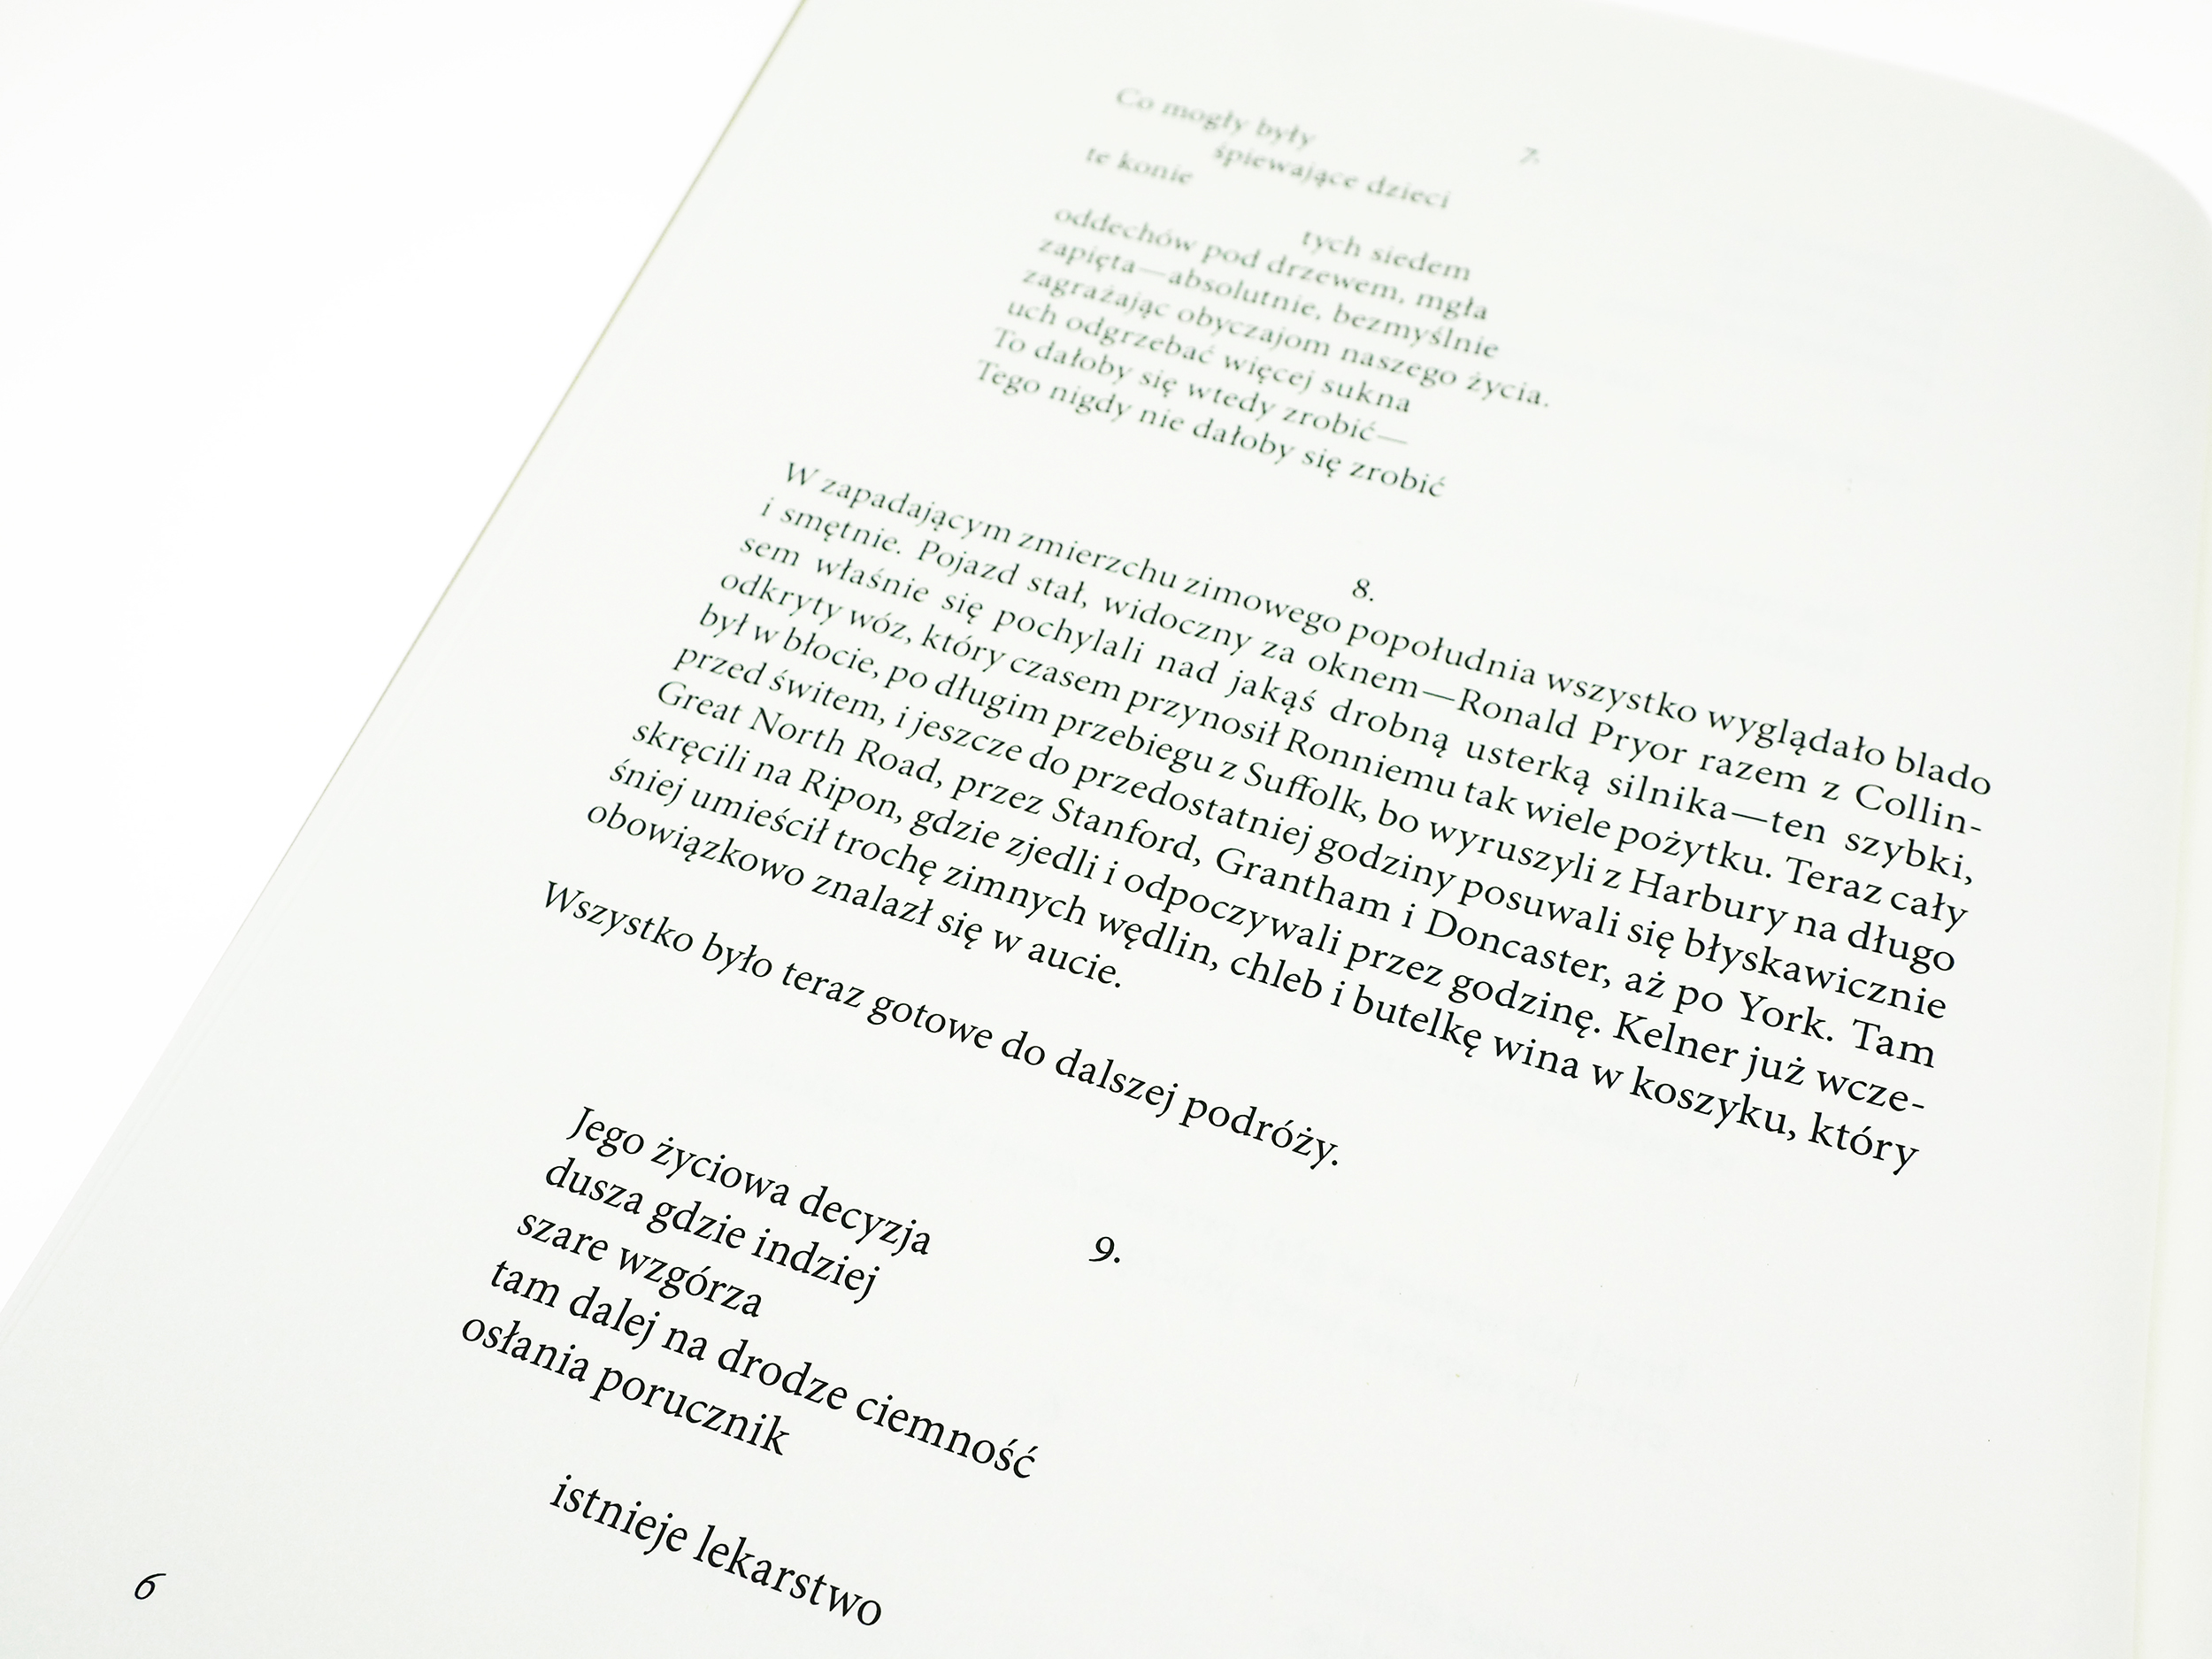 7.
Co mogły były
śpiewające dzieci
te konie
tych siedem
oddechów pod drzewem, mgła
zapięta—absolutnie, bezmyślnie
zagrażając obyczajom naszego życia.
uch odgrzebać więcej sukna
To dałoby się wtedy zrobić—
Tego nigdy nie dałoby się zrobić
8.
W zapadającym zmierzchu zimowego popołudnia wszystko wyglądało blado
i smętnie. Pojazd stał, widoczny za oknem—Ronald Pryor razem z Collin-
sem właśnie się pochylali nad jakąś drobną usterką silnika—ten szybki,
odkryty wóz, który czasem przynosił Ronniemu tak wiele pożytku. Teraz cały
był w błocie, po długim przebiegu z Suffolk, bo wyruszyli z Harbury na długo
przed świtem, i jeszcze do przedostatniej godziny posuwali się błyskawicznie
Great North Road, przez Stanford, Grantham i Doncaster, aż po York. Tam
skręcili na Ripon, gdzie zjedli i odpoczywali przez godzinę. Kelner już wcze-
śniej umieścił trochę zimnych wędlin, chleb i butelkę wina w koszyku, który
obowiązkowo znalazł się w aucie.
Wszystko było teraz gotowe do dalszej podróży.
9.
Jego życiowa decyzja
dusza gdzie indziej
szare wzgórza
tam dalej na drodze ciemność
osłania porucznik
istnieje lekarstwo
6